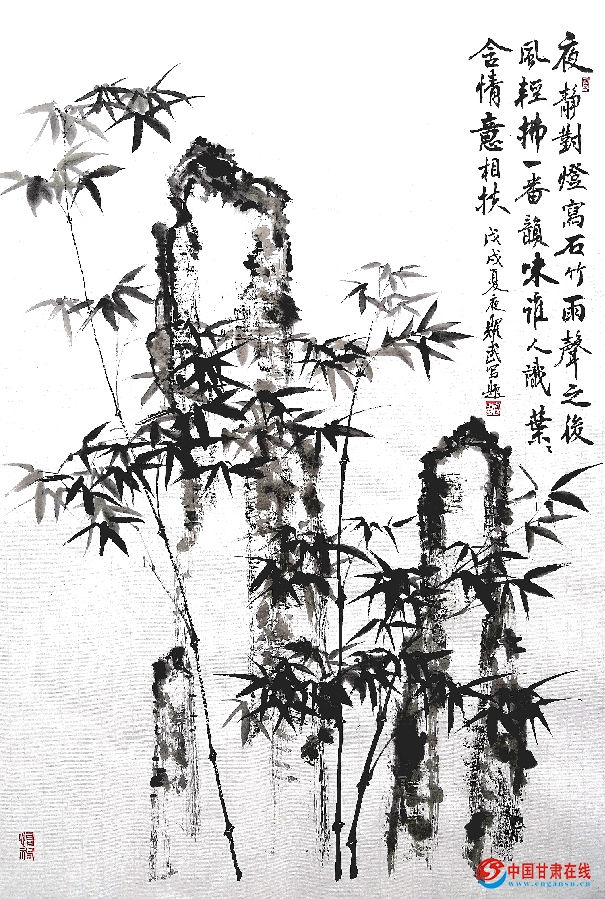 夜静對燈寫石竹雨聲之後
風輕拂一番韻味誰人識葉〻
含情意相扶 戊戌夏夜
中国甘肃在线
www.cngansu.cn